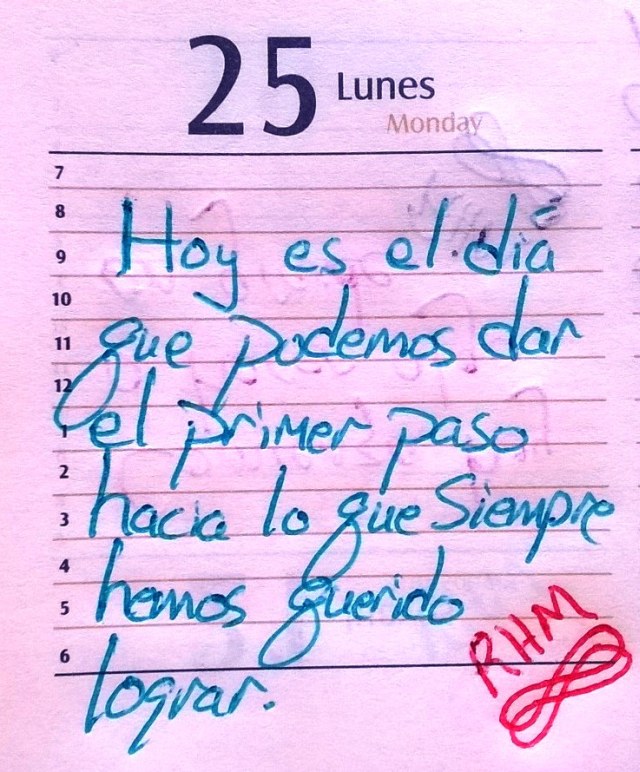 25 Lunes
Monday
7
8
Hoy es el día
9
10
11
que podemos dar
12
1
el primer paso
2
3
hacia lo que Siempre
4
5
hemos querido
6
lograr.
RHM